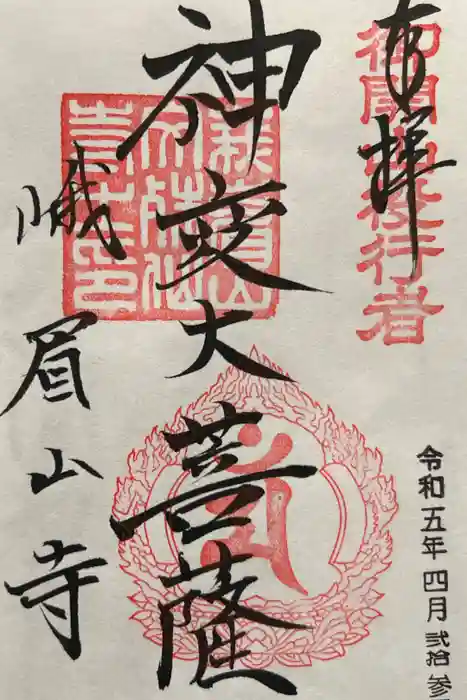 奉拝
御開 役行者
神変大菩薩
峨眉山寺
令和五年四月弐拾参